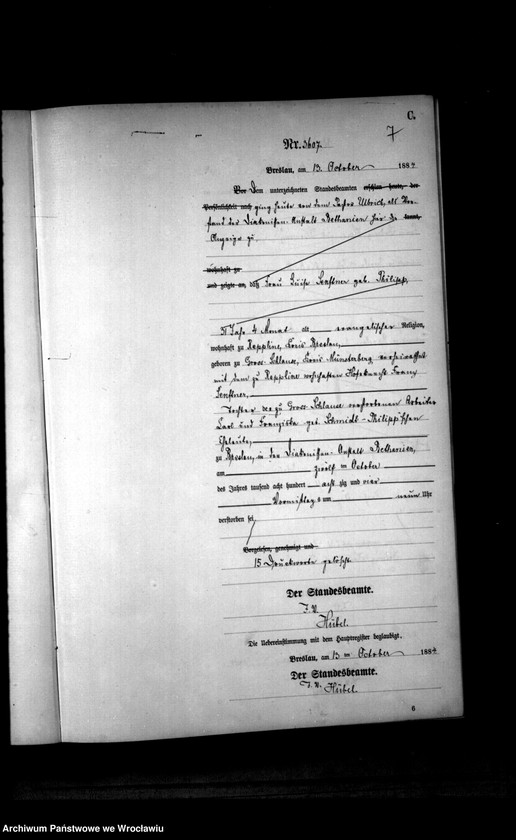 C.
7
Nr. 3607.
Breslau, am 13 October 1884
Vor Dem unterzeichneten Standesbeamten erschien heute, der
Persönlichkeit nach ging heute von dem Pastor Ulbrich, als Vor-
stand der Diakonissen-Anstalt Bethanien hier die
Anzeige zu,
wohnhaft zu
und zeigte an, daß Frau Luise Senftner geb. Philipp,
Jahr 4 Monat alt evangelischer Religion,
wohnhaft zu Kreis Breslau,
geboren zu Gross-Schlause, Kreis Münsterberg, verheirathet
mit dem zu wohnhaften Franz
Senftner,
Tochter der zu Gross-Schlause verstorbenen Arbeiter
Carl und Franziska geb. Schmidt-Philipp'schen
Eheleute,
zu Breslau, in der Diakonissen-Anstalt Bethanien,
am zwölften October
des Jahres tausend acht hundert achtzig und vier
Vormittags um neun Uhr
verstorben sei
Vorgelesen, genehmigt und
15 Druckworte gelöscht.
Der Standesbeamte.
I. V.
Hübel.
Die Uebereinstimmung mit dem Hauptregister beglaubigt.
Breslau, am 13 ten October 1884
Der Standesbeamte.
I. V. Hübel.
6
Archiwum Państwowe we Wrocławiu